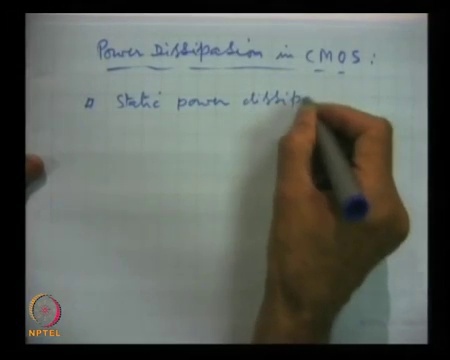 Power Dissipation in CMOS:
Static power dissip
NPTEL